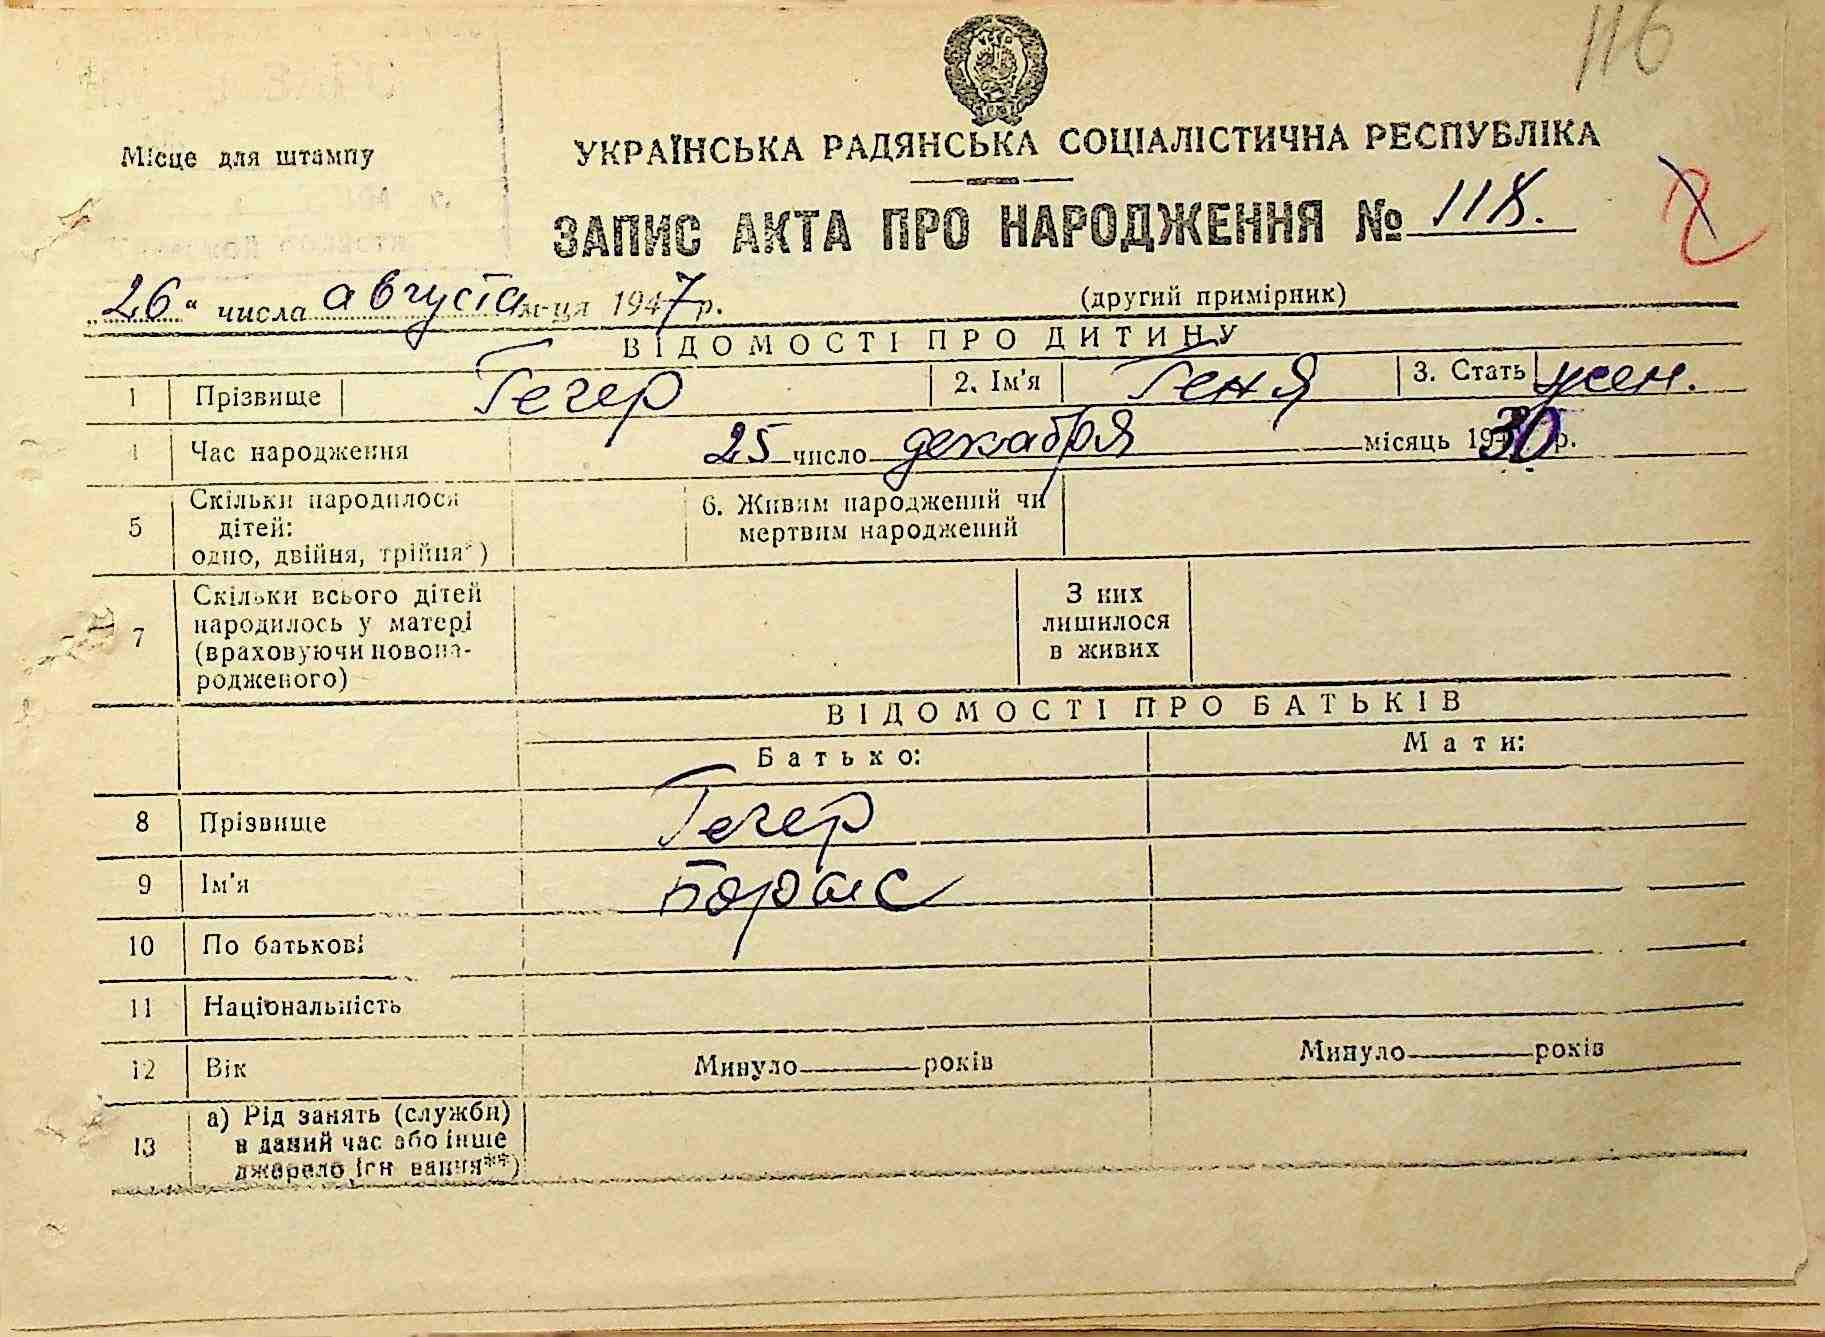 116
Місце для штампу
УКРАЇНСЬКА РАДЯНСЬКА СОЦІАЛІСТИЧНА РЕСПУБЛІКА
ЗАПИС АКТА ПРО НАРОДЖЕННЯ № 118.
„26“ числа августа м-ця 1947 р.
(другий примірник)
ВІДОМОСТІ ПРО ДИТИНУ
1 Прізвище Гегер 2. Ім'я Геня 3. Стать жен.
4 Час народження 25 число декабря місяць 1930 р.
5 Скільки народилося дітей: одно, двійня, трійня*)
6. Живим народжений чи мертвим народжений
7 Скільки всього дітей народилось у матері (враховуючи новонародженого)
З них лишилося в живих
ВІДОМОСТІ ПРО БАТЬКІВ
Батько: Мати:
8 Прізвище Гегер
9 Ім'я Борис
10 По батькові
11 Національність
12 Вік Минуло років Минуло років
13 а) Рід занять (служби) в даний час або інше джерело